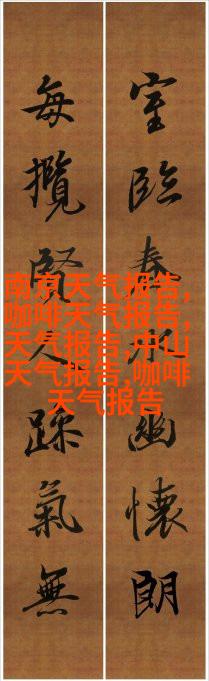 室臨春水幽懷朗
每攬賢人躁氣無
南京天气报告,
咖啡天气报告,
天气报告,中山
天气报告,咖啡
天气报告